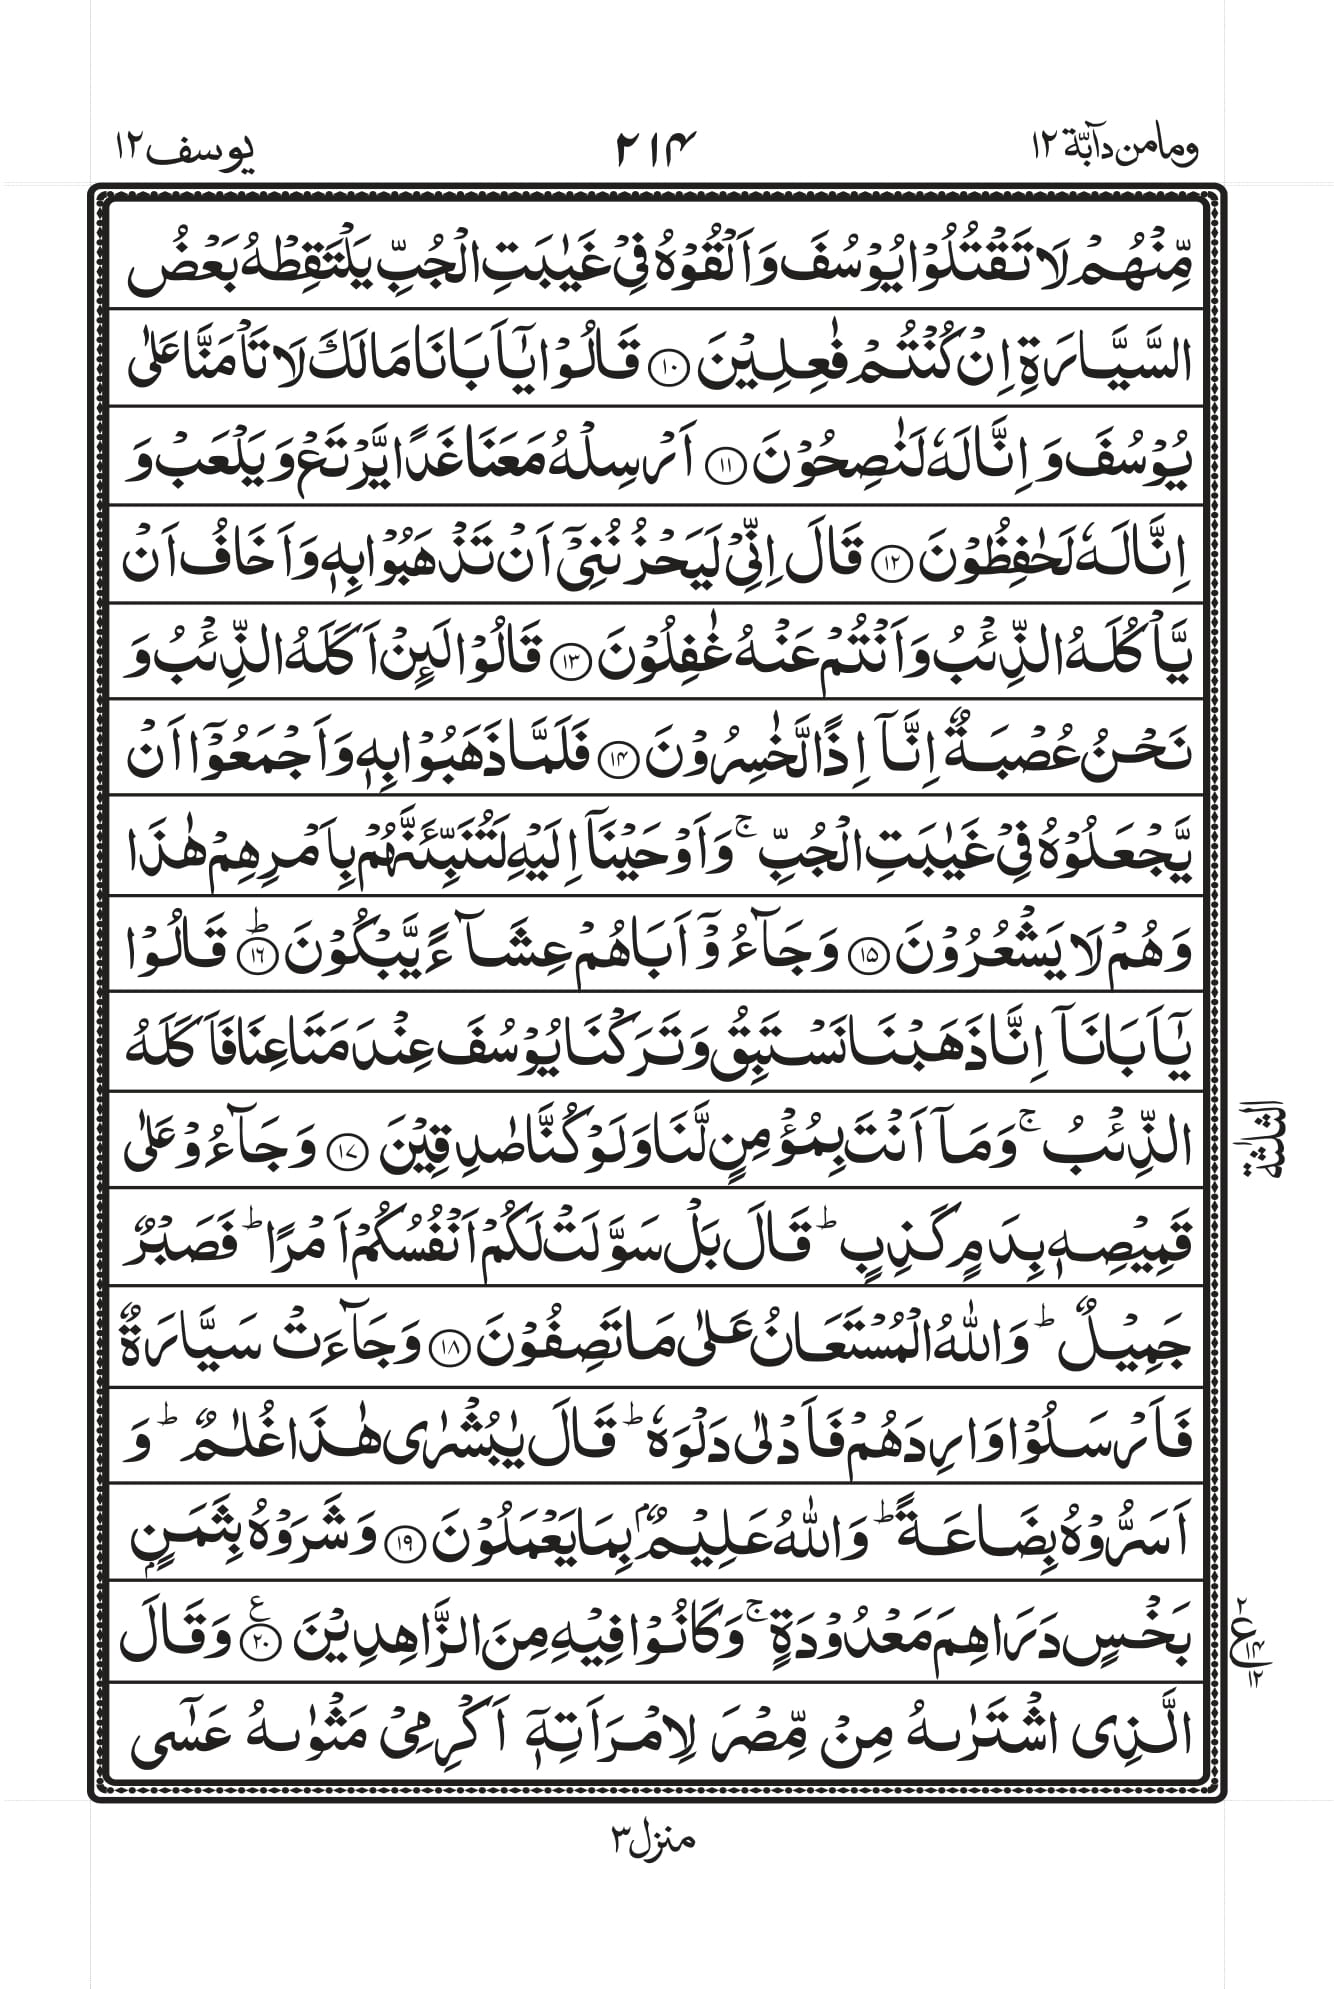 ومامن دآبّة ۱۲
۲۱۴
یوسف ۱۲
مِّنْهُمْ لَا تَقْتُلُوْا یُوْسُفَ وَاَلْقُوْهُ فِیْ غَیٰبَتِ الْجُبِّ یَلْتَقِطْهُ بَعْضُ
السَّیَّارَةِ اِنْ كُنْتُمْ فٰعِلِیْنَ ۱۰ قَالُوْا یٰۤاَبَانَا مَالَكَ لَا تَاْمَنَّا عَلٰی
یُوْسُفَ وَ اِنَّا لَهٗ لَنٰصِحُوْنَ ۱۱ اَرْسِلْهُ مَعَنَا غَدًا یَّرْتَعْ وَ یَلْعَبْ وَ
اِنَّا لَهٗ لَحٰفِظُوْنَ ۱۲ قَالَ اِنِّیْ لَیَحْزُنُنِیْۤ اَنْ تَذْهَبُوْا بِهٖ وَ اَخَافُ اَنْ
یَّاْكُلَهُ الذِّئْبُ وَ اَنْتُمْ عَنْهُ غٰفِلُوْنَ ۱۳ قَالُوْا لَىِٕنْ اَكَلَهُ الذِّئْبُ وَ
نَحْنُ عُصْبَةٌ اِنَّاۤ اِذًا لَّخٰسِرُوْنَ ۱۴ فَلَمَّا ذَهَبُوْا بِهٖ وَ اَجْمَعُوْۤا اَنْ
یَّجْعَلُوْهُ فِیْ غَیٰبَتِ الْجُبِّ ۚ وَ اَوْحَیْنَاۤ اِلَیْهِ لَتُنَبِّئَنَّهُمْ بِاَمْرِهِمْ هٰذَا
وَ هُمْ لَا یَشْعُرُوْنَ ۱۵ وَ جَآءُوْۤ اَبَاهُمْ عِشَآءً یَّبْكُوْنَ ؕ ۱۶ قَالُوْا
یٰۤاَبَانَاۤ اِنَّا ذَهَبْنَا نَسْتَبِقُ وَ تَرَكْنَا یُوْسُفَ عِنْدَ مَتَاعِنَا فَاَكَلَهُ
الذِّئْبُ ۚ وَ مَاۤ اَنْتَ بِمُؤْمِنٍ لَّنَا وَ لَوْ كُنَّا صٰدِقِیْنَ ۱۷ وَ جَآءُوْ عَلٰی
قَمِیْصِهٖ بِدَمٍ كَذِبٍ ؕ قَالَ بَلْ سَوَّلَتْ لَكُمْ اَنْفُسُكُمْ اَمْرًا ؕ فَصَبْرٌ
جَمِیْلٌ ؕ وَ اللّٰهُ الْمُسْتَعَانُ عَلٰی مَا تَصِفُوْنَ ۱۸ وَ جَآءَتْ سَیَّارَةٌ
فَاَرْسَلُوْا وَارِدَهُمْ فَاَدْلٰی دَلْوَهٗ ؕ قَالَ یٰبُشْرٰی هٰذَا غُلٰمٌ ؕ وَ
اَسَرُّوْهُ بِضَاعَةً ؕ وَ اللّٰهُ عَلِیْمٌۢ بِمَا یَعْمَلُوْنَ ۱۹ وَ شَرَوْهُ بِثَمَنٍۭ
بَخْسٍ دَرَاهِمَ مَعْدُوْدَةٍ ۚ وَ كَانُوْا فِیْهِ مِنَ الزَّاهِدِیْنَ ۲۰ ع وَ قَالَ
الَّذِی اشْتَرٰىهُ مِنْ مِّصْرَ لِامْرَاَتِهٖۤ اَكْرِمِیْ مَثْوٰىهُ عَسٰۤی
الثلثة
۲
ع
۱۴
۱۲
منزل ۳